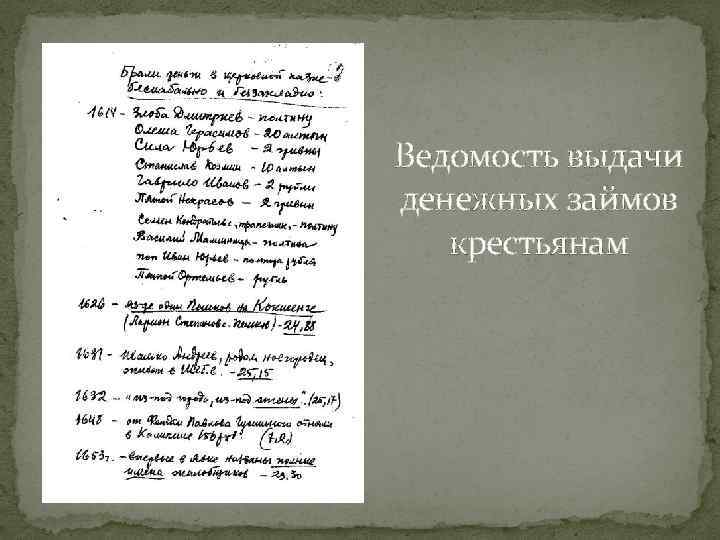 Брали деньги в церковной казне
бескабально и беззакладно:
1614 - Злоба Дмитриев - полтину
Олеша Герасимов - 20 алтын
Сила Юрьев - 2 гривны
Станислав Козмин - 10 алтын
Гаврило Иванов - 2 рубли
Пятой Некрасов - 2 гривны
Семен Кондратьев, трапезник, - полтину
Василий Мамницца - полтина
поп Иван Юрьев - полтора рубля
Пятой Ортемьев - рубль
1626 - один Пошков на Кокшенге
(Ларион Степанов - Пошков) - 24,88
1631 - Ивашко Андреев, родом новгородец,
живет в - 25,15
1632 - "из-под города, из-под стены". (25,17)
1648 - от Павлова отняли
в 156 руб (7,2)
1653 г. - впервые в названы полные
имена жалобщиков - 29,30
Ведомость выдачи
денежных займов
крестьянам